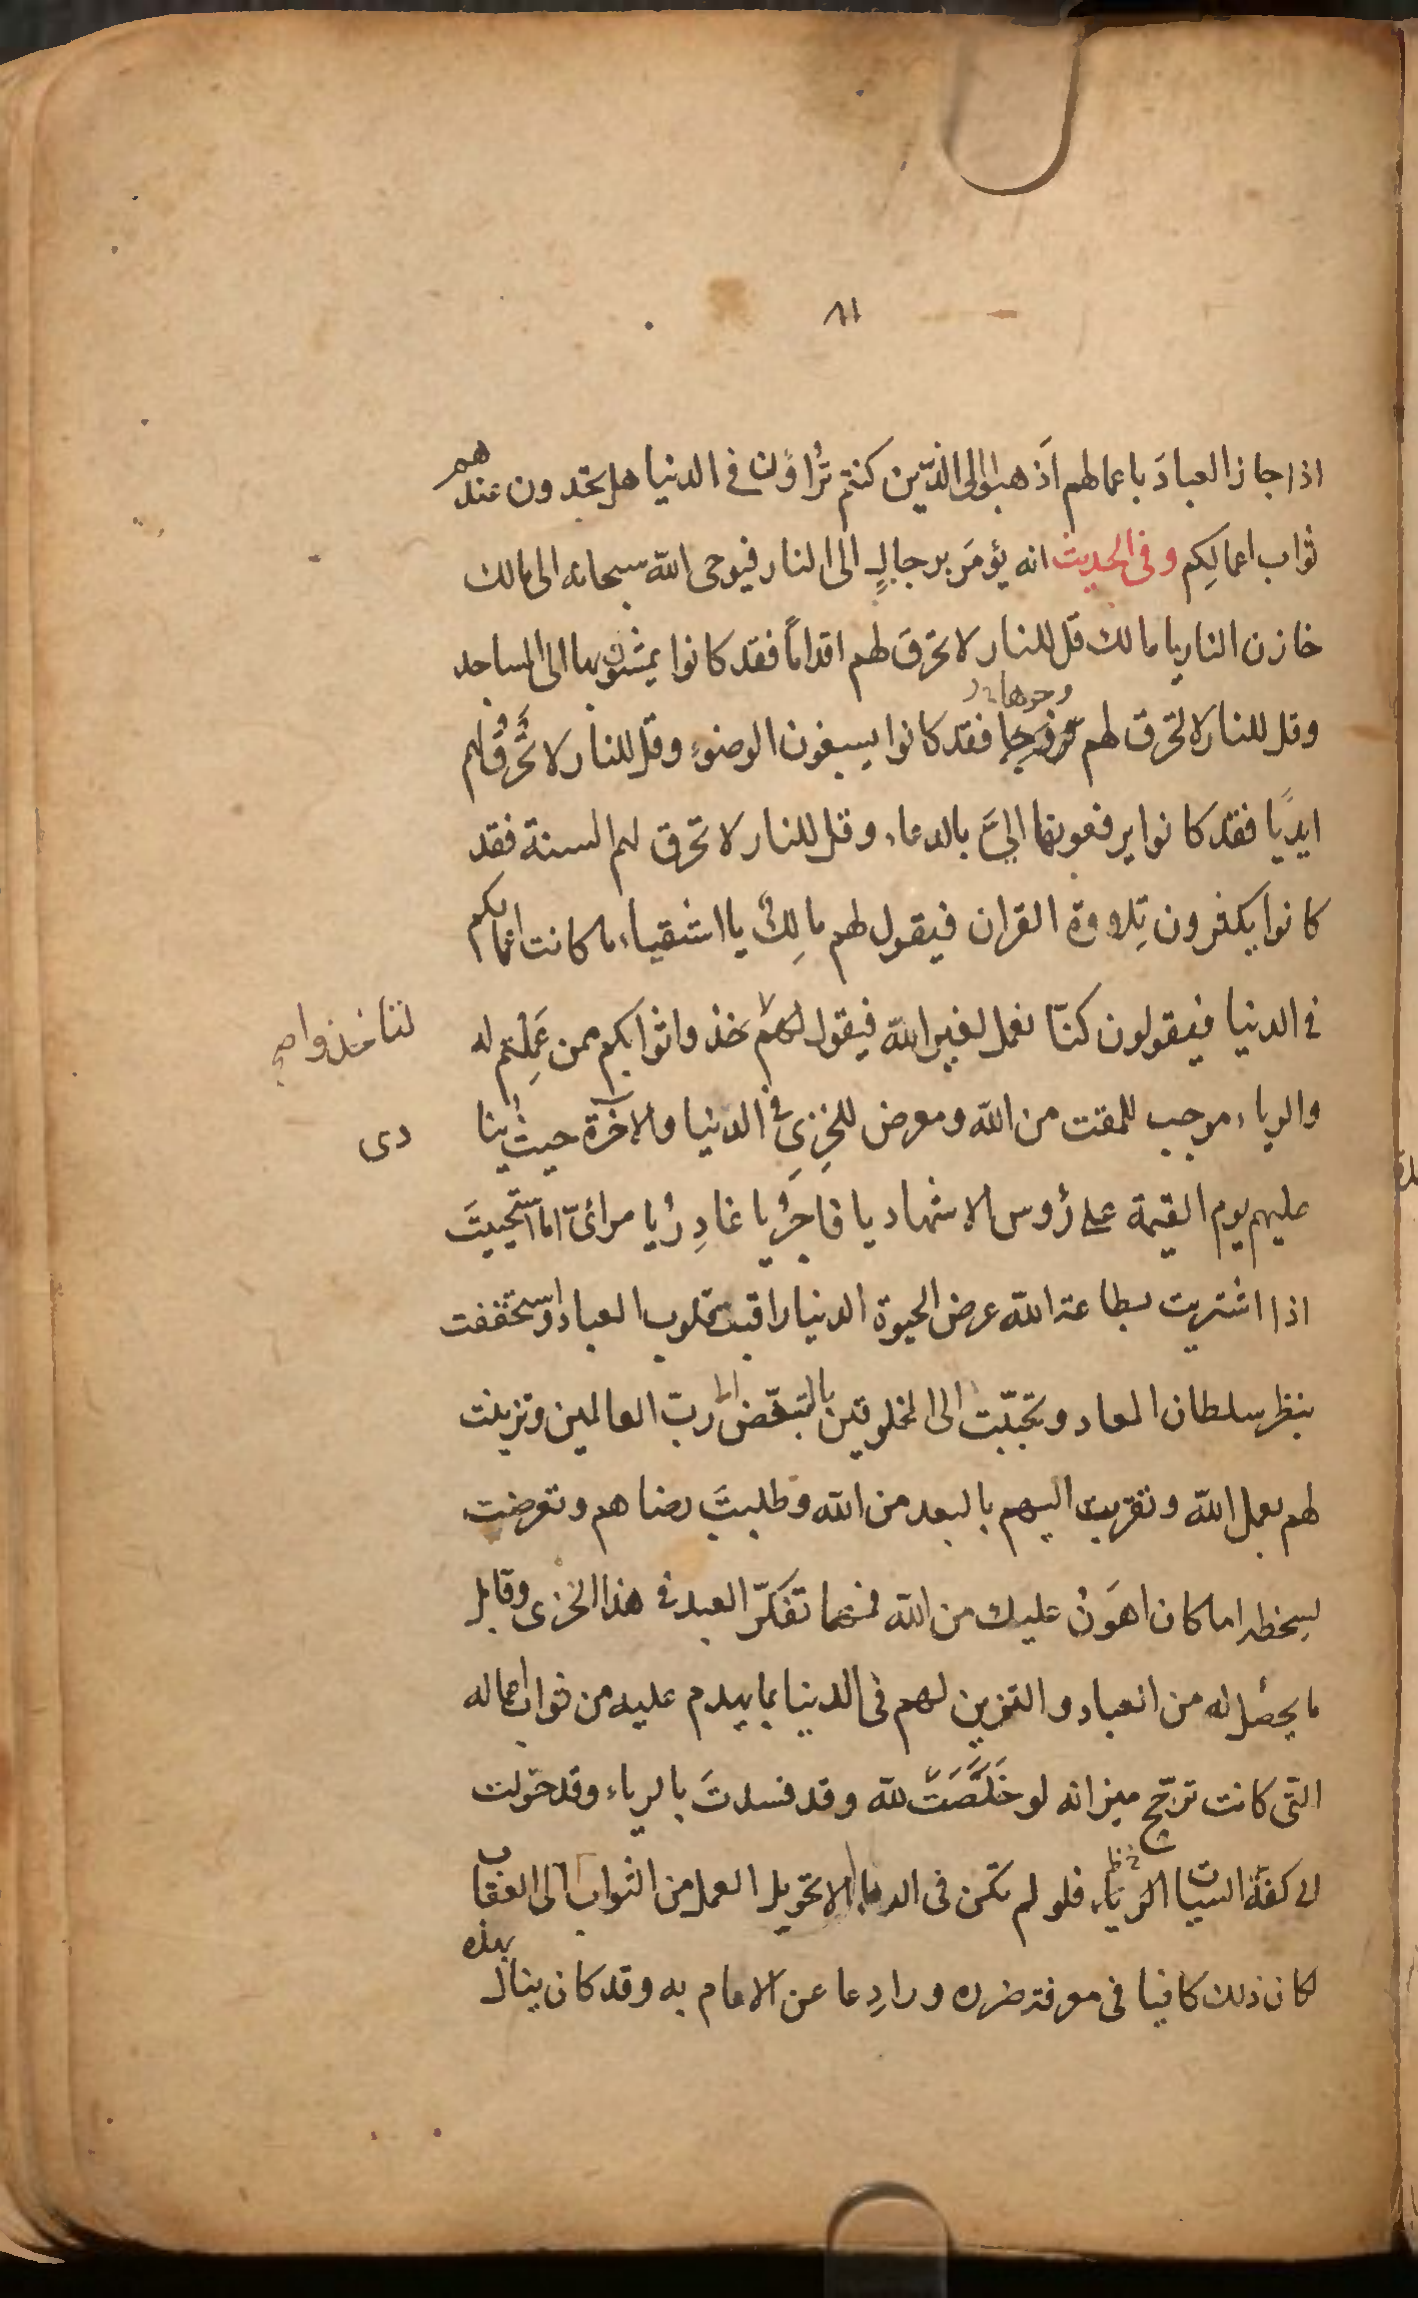 ٨١
اذا جاز العبادَ باعمالهم اَذهبوا الى الذّين كنتم تُراوُن في الدنيا هل تجدون عندهم
ثواب اعمالِكم وفى الحديث انه يؤمَر برجالٍ الى النار فيوحى الله سبحانه الى مالك
خازن النار يا مالك قل للنار لا تحرق لهم اقدامًا فقد كانوا يمشون بها الى المساجد
وجوها
وقل للنار لا تحرق لهم فقد كانوا يسبغون الوضوء وقل للنار لا تُحرقُ لهم
ايديًا فقد كانوا يرفعونها اليَّ بالدعاء وقل للنار لا تحرق لهم السنة فقد
كانوا يكفرون تِلاوة القران فيقول لهم مالِكٌ يا اشقياء ما كانت اعمالكم
في الدنيا فيقولون كنّا نعمل لغير الله فيقول لهم خذوا ثوابكم ممن عَمِلتم له
لتاخذوا صح
والرياء موجب للمقت من الله ومعرض للخِزىِ في الدنيا والآخرة حيث ينا
دى
عليهم يوم القيمة على رُوس الاشهاد يا فاجرُ يا غادِرُ يا مرائىّ اما استحييتَ
اذا اشتريت بطاعة الله عرض الحيوة الدنيا راقبت قلوب العباد واستخففت
بنظر سلطان المعاد وتحبّبت الى المخلوقين بالتبغّض الى ربّ العالمين وتزينت
لهم بعمل الله وتقربت اليهم بالبعد من الله وطلبتَ رضاهم وتعرضت
لسخطه اما كان اهوَنُ عليك من الله فمهما تفكّر العبد في هذا الخزى وقابل
ما يحصُل له من العباد والتزين لهم في الدنيا بما يهدم عليه من ثواب اعماله
التى كانت ترجّح ميزانه لو خَلَصَتْ لله وقد فسدتَ بالرياء وقد حوّلت
الى كفة السيئات الرياء فلو لم تكن في الرياء الا تحويل العمل من الثواب الى العقاب
لكان ذلك كافيا في معرفة ضرره ورادِعا عن الالمام به وقد كان ينال
بهذه